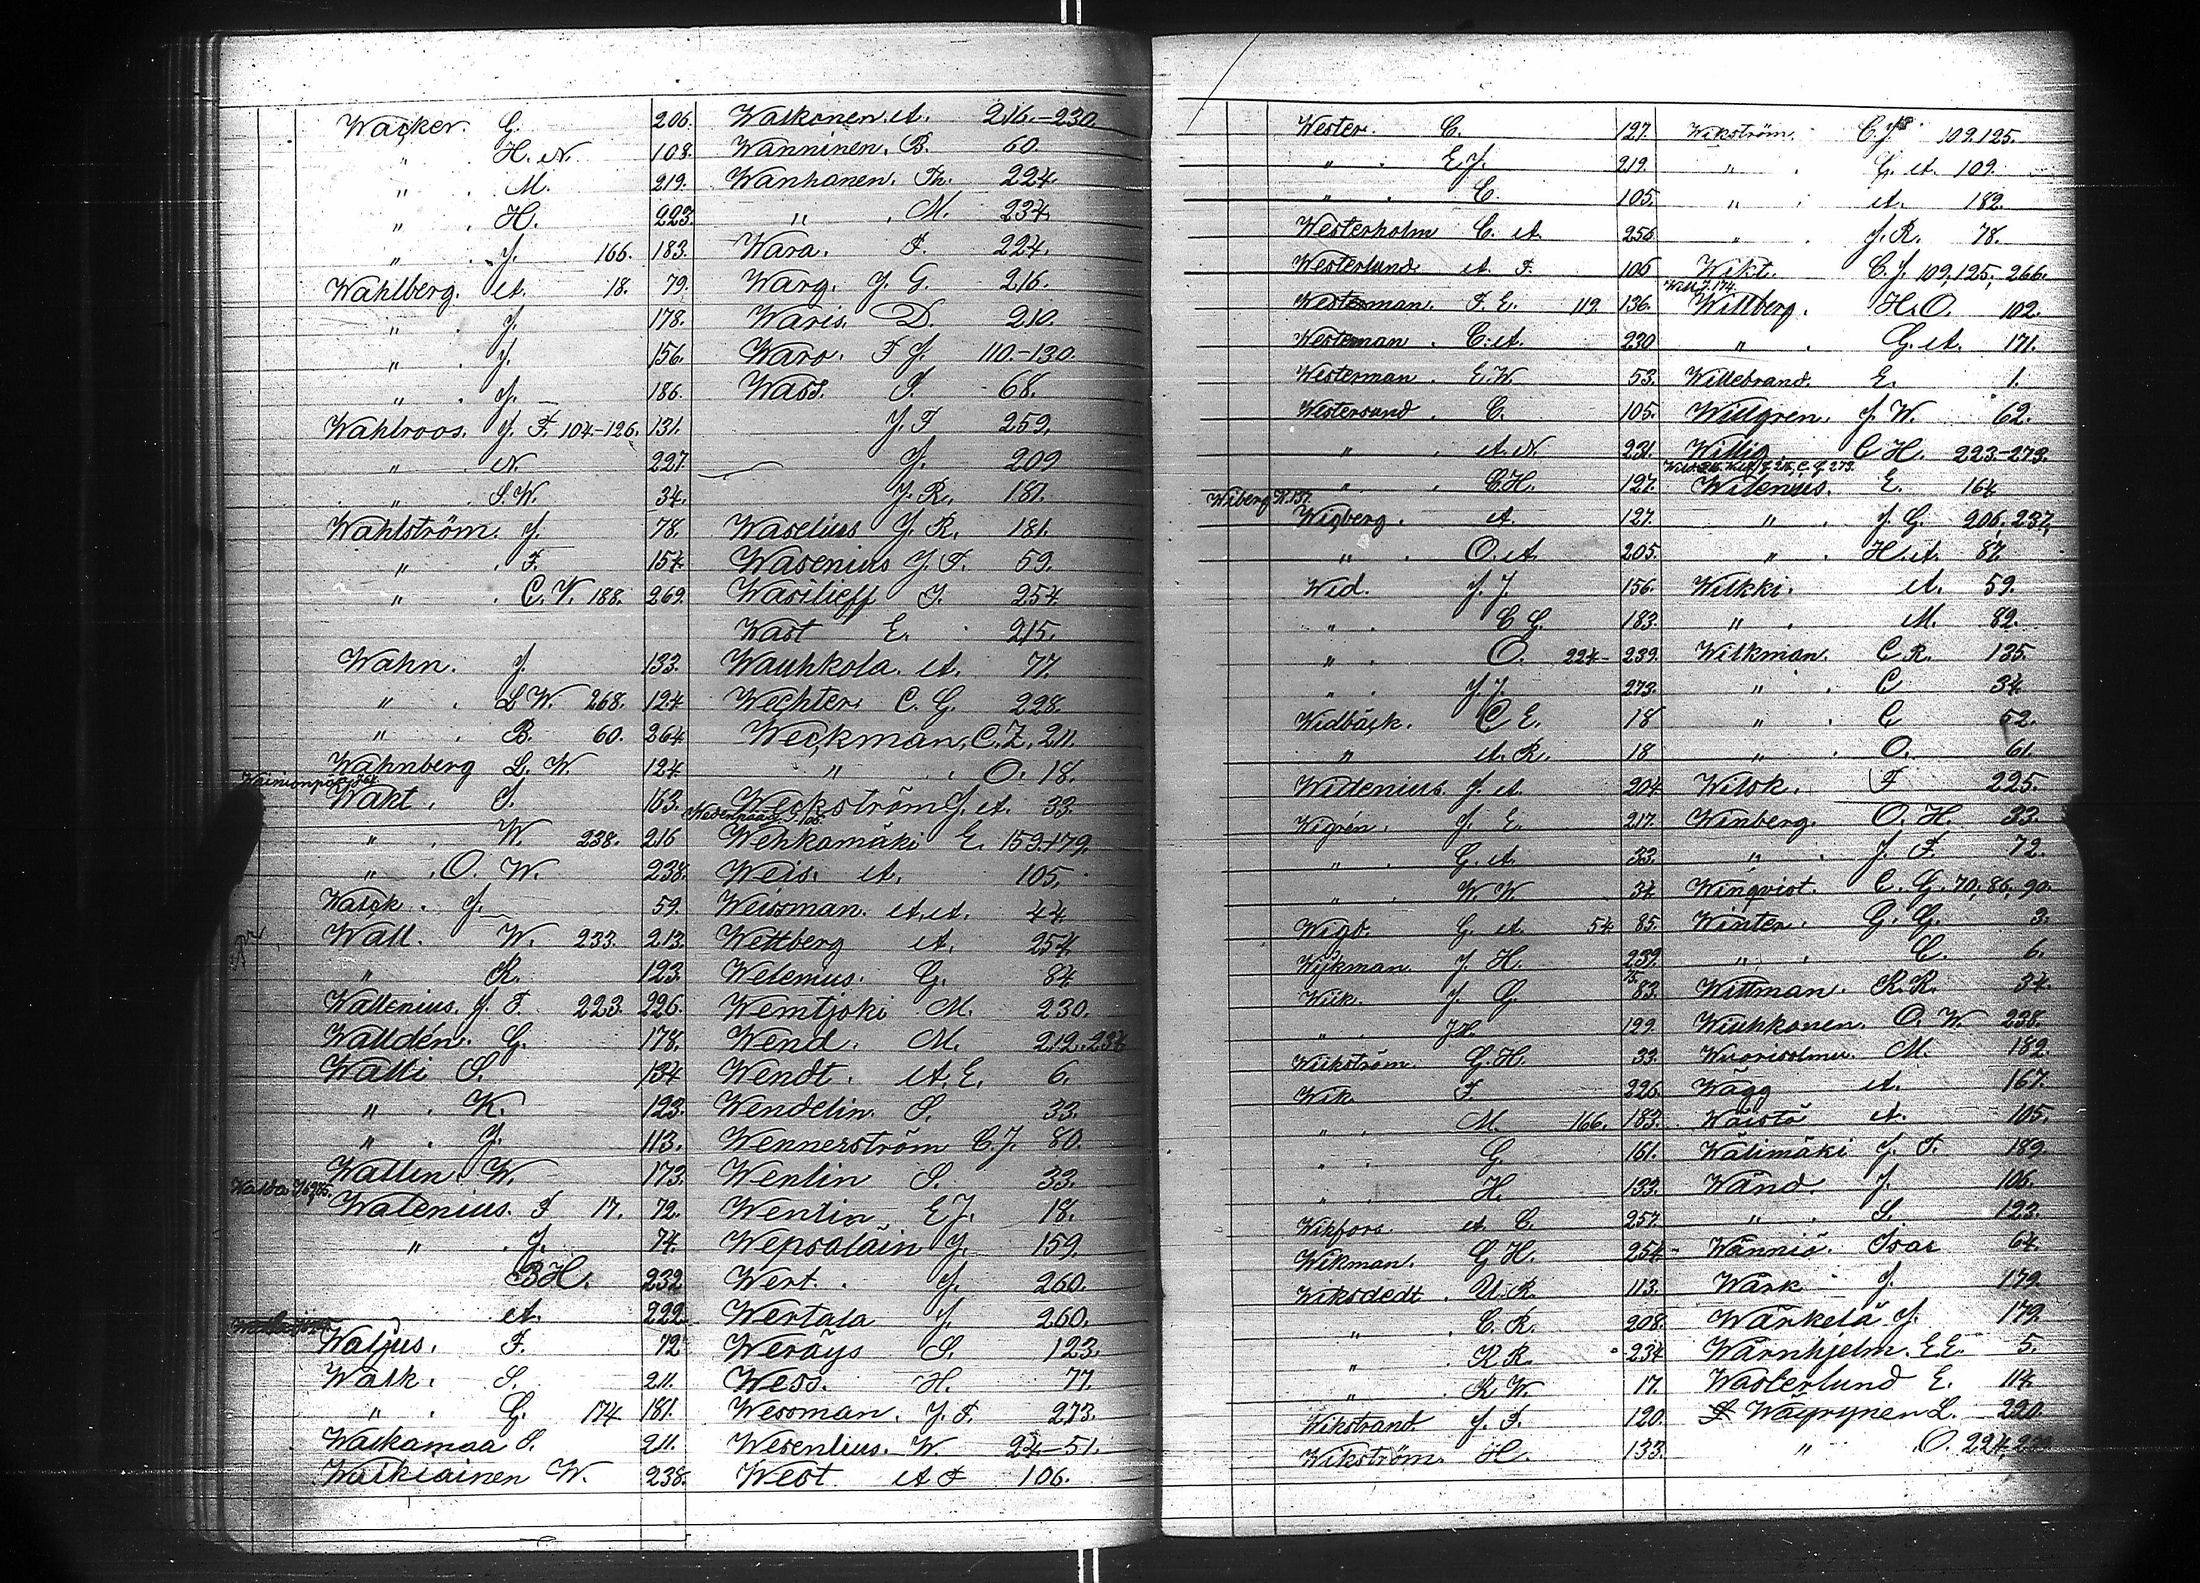 Wacker. G. 206.
" . H. A. 108.
" . M. 219.
" . H. 223.
" . J. 166. 183.
Wahlberg. A. 18. 79.
" . J. 178.
" . J. 156.
" . J. 186.
Wahlroos. J. F. 104-126. 131.
" . A. 227.
" . S. W. 34.
Wahlström. J. 78.
" . F. 154.
" . C. V. 188. 269.
Wahn. J. 133.
" . L W. 268. 124.
" . B. 60. 264.
Wahnberg L. W. 124.
Wainionpää 164.
Wakt. S. 163.
" . W. 238. 216
" . O. W. 238.
Walck. J. 59.
Wall. W. 233. 213.
" K. 123.
Wallenius. J. F. 223. 226.
Walldén. G. 178.
Walli S. 134
" . K. 123.
" . J. 113.
Wallin. W. 173.
Walenius. F 17. 72.
" . J. 74.
B H. 232
A. 222.
Waljus. F. 72
Walk. S. 211.
" . G. 174 181.
Walkamaa S. 211.
Walkiainen W. 238.
Walkonen. A. 216.-230
Wanninen. B. 60.
Wanhanen. Th. 224.
" . M. 234.
Wara. F. 224.
Warg. J. G. 216.
Waris. D. 210.
Waro. F J. 110.-130.
Wass. S. 68.
J. F 259.
J. 209
J. R. 181.
Waselius J. R. 181.
Wasenius J. F. 59.
Wasilieff J. 254.
Wast E. 215.
Wauhkola. A. 77.
Wechter. C. G. 228.
Weckman. C. Z. 211.
" . O. 18.
Weckström J. A. 33.
Wehkamäki E. 159.-179.
Weis. A. 105.
Weisman. A. A. 44.
Wettberg A. 254.
Welenius. G. 84.
Wemtjoki M. 230.
Wend. M. 212. 234
Wendt. A. E. 6.
Wendelin. S. 33.
Wennerström C. J. 80.
Wentin S. 33.
Wentin E J. 18.
Wepsäläin J. 159.
Wert. J. 260.
Wertala J. 260.
Weräys S. 123.
Wess. H. 77.
Wessman. J. F. 273.
Wesenlius. W. 24-51.
West A F 106.
Wester. C. 127.
" . E J. 219.
" . C. 105.
Westerholm C. A. 256
Westerlund. A. F. 106
Westerman. F. E. 119. 136.
Westerman. C. A. 230
Westerman. E. W. 53.
Westersund. C. 105.
" . A. A. 231.
" . C. H. 127.
Wiberg K. 137.
Wigberg. A. 127.
" . O. A. 205.
Wid. J. J. 156.
" . C G. 183.
" . O. 224- 239.
" . J. J. 273.
Widbäck. C E. 18
" A. R. 18
Widenius J. A 204.
Wigrén. J. E. 217.
" . G. A. 33.
" . W. W. 34.
Wigs. G. A 54. 85.
Wijkman J. H. 239.
Wiik. J. G. 83.
" . J. H. 199.
Wiikström. G. H. 33.
Wik F. 226.
" . M. 166. 183.
" . G. 161.
" . H. 133.
Wikfors. A. C. 257.
Wikman. G H. 254-
Wikstedt. U. R. 113.
" . C. R. 208.
" . R R. 234
" . R W. 17.
Wikstrand. J. F. 120.
Wikström. H. 133.
Wikström. C. J 18 109. 125.
" . G. A. 109.
" . A. 182.
" . J. R. 78.
Wikt. C. J. 109, 125, 266.
Will J. 174.
Willberg. H. O. 102.
" . G. A. 171.
Willebrand. E. 1.
Willgren. J. W. 62.
Willig. C H. 223-273.
Wilenius. E. 164
" . J. G. 206, 237,
" . H. A. 87.
Wilkki. A. 59.
" . M. 82.
Wilkman. C R. 135.
" . C 34.
" . C 52.
" . O. 61.
Wilsk. F 225.
Winberg. O. H. 33.
" . J. F. 72.
Winqvist. C. G. 70, 86, 90.
Winter. G. G. 3.
" . C. 6.
Wittman. R. R. 34.
Wiuhkonen. O. W. 238.
M. 182.
Wägg A. 167.
Wäistö A. 105.
Wälimäki J. F. 189.
Wänd. J. 106.
" . S. 123.
Wänniö. Isac 64.
Wärk J. 179.
Wärkelä J. 179.
Wärnhjelm. E E. 5.
Wästerlund E. 114.
Wäyrynen L. 220.
" O. 224,